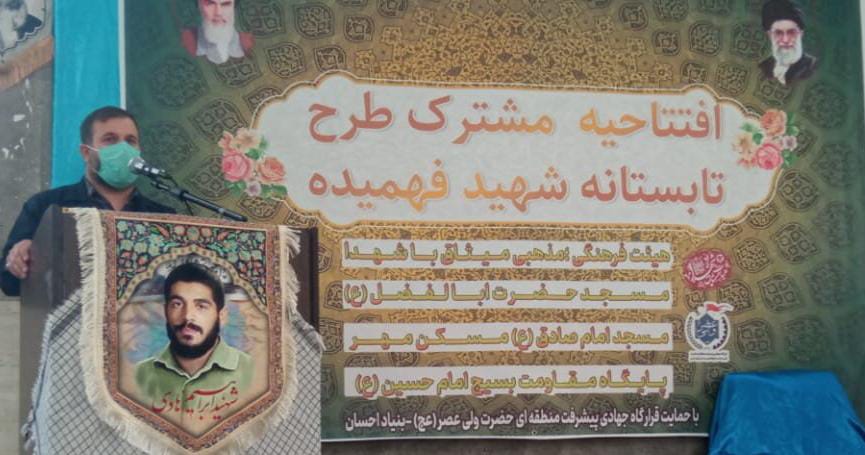 افتتاحیه مشترک طرح
تابستانه شهید فهمیده
هیئت فرهنگی ؛مذهبی میثاق با شهدا
مسجد حضرت ابا لفضل (ع)
مسجد امام صادق (ع) مسکن مهر
پایگاه مقاومت بسیج امام حسین (ع)
با حمایت قرارگاه جهادی پیشرفت منطقه ای حضرت ولی عصر (عج) -بنیاد احسان
شهید ابراهیم هادی